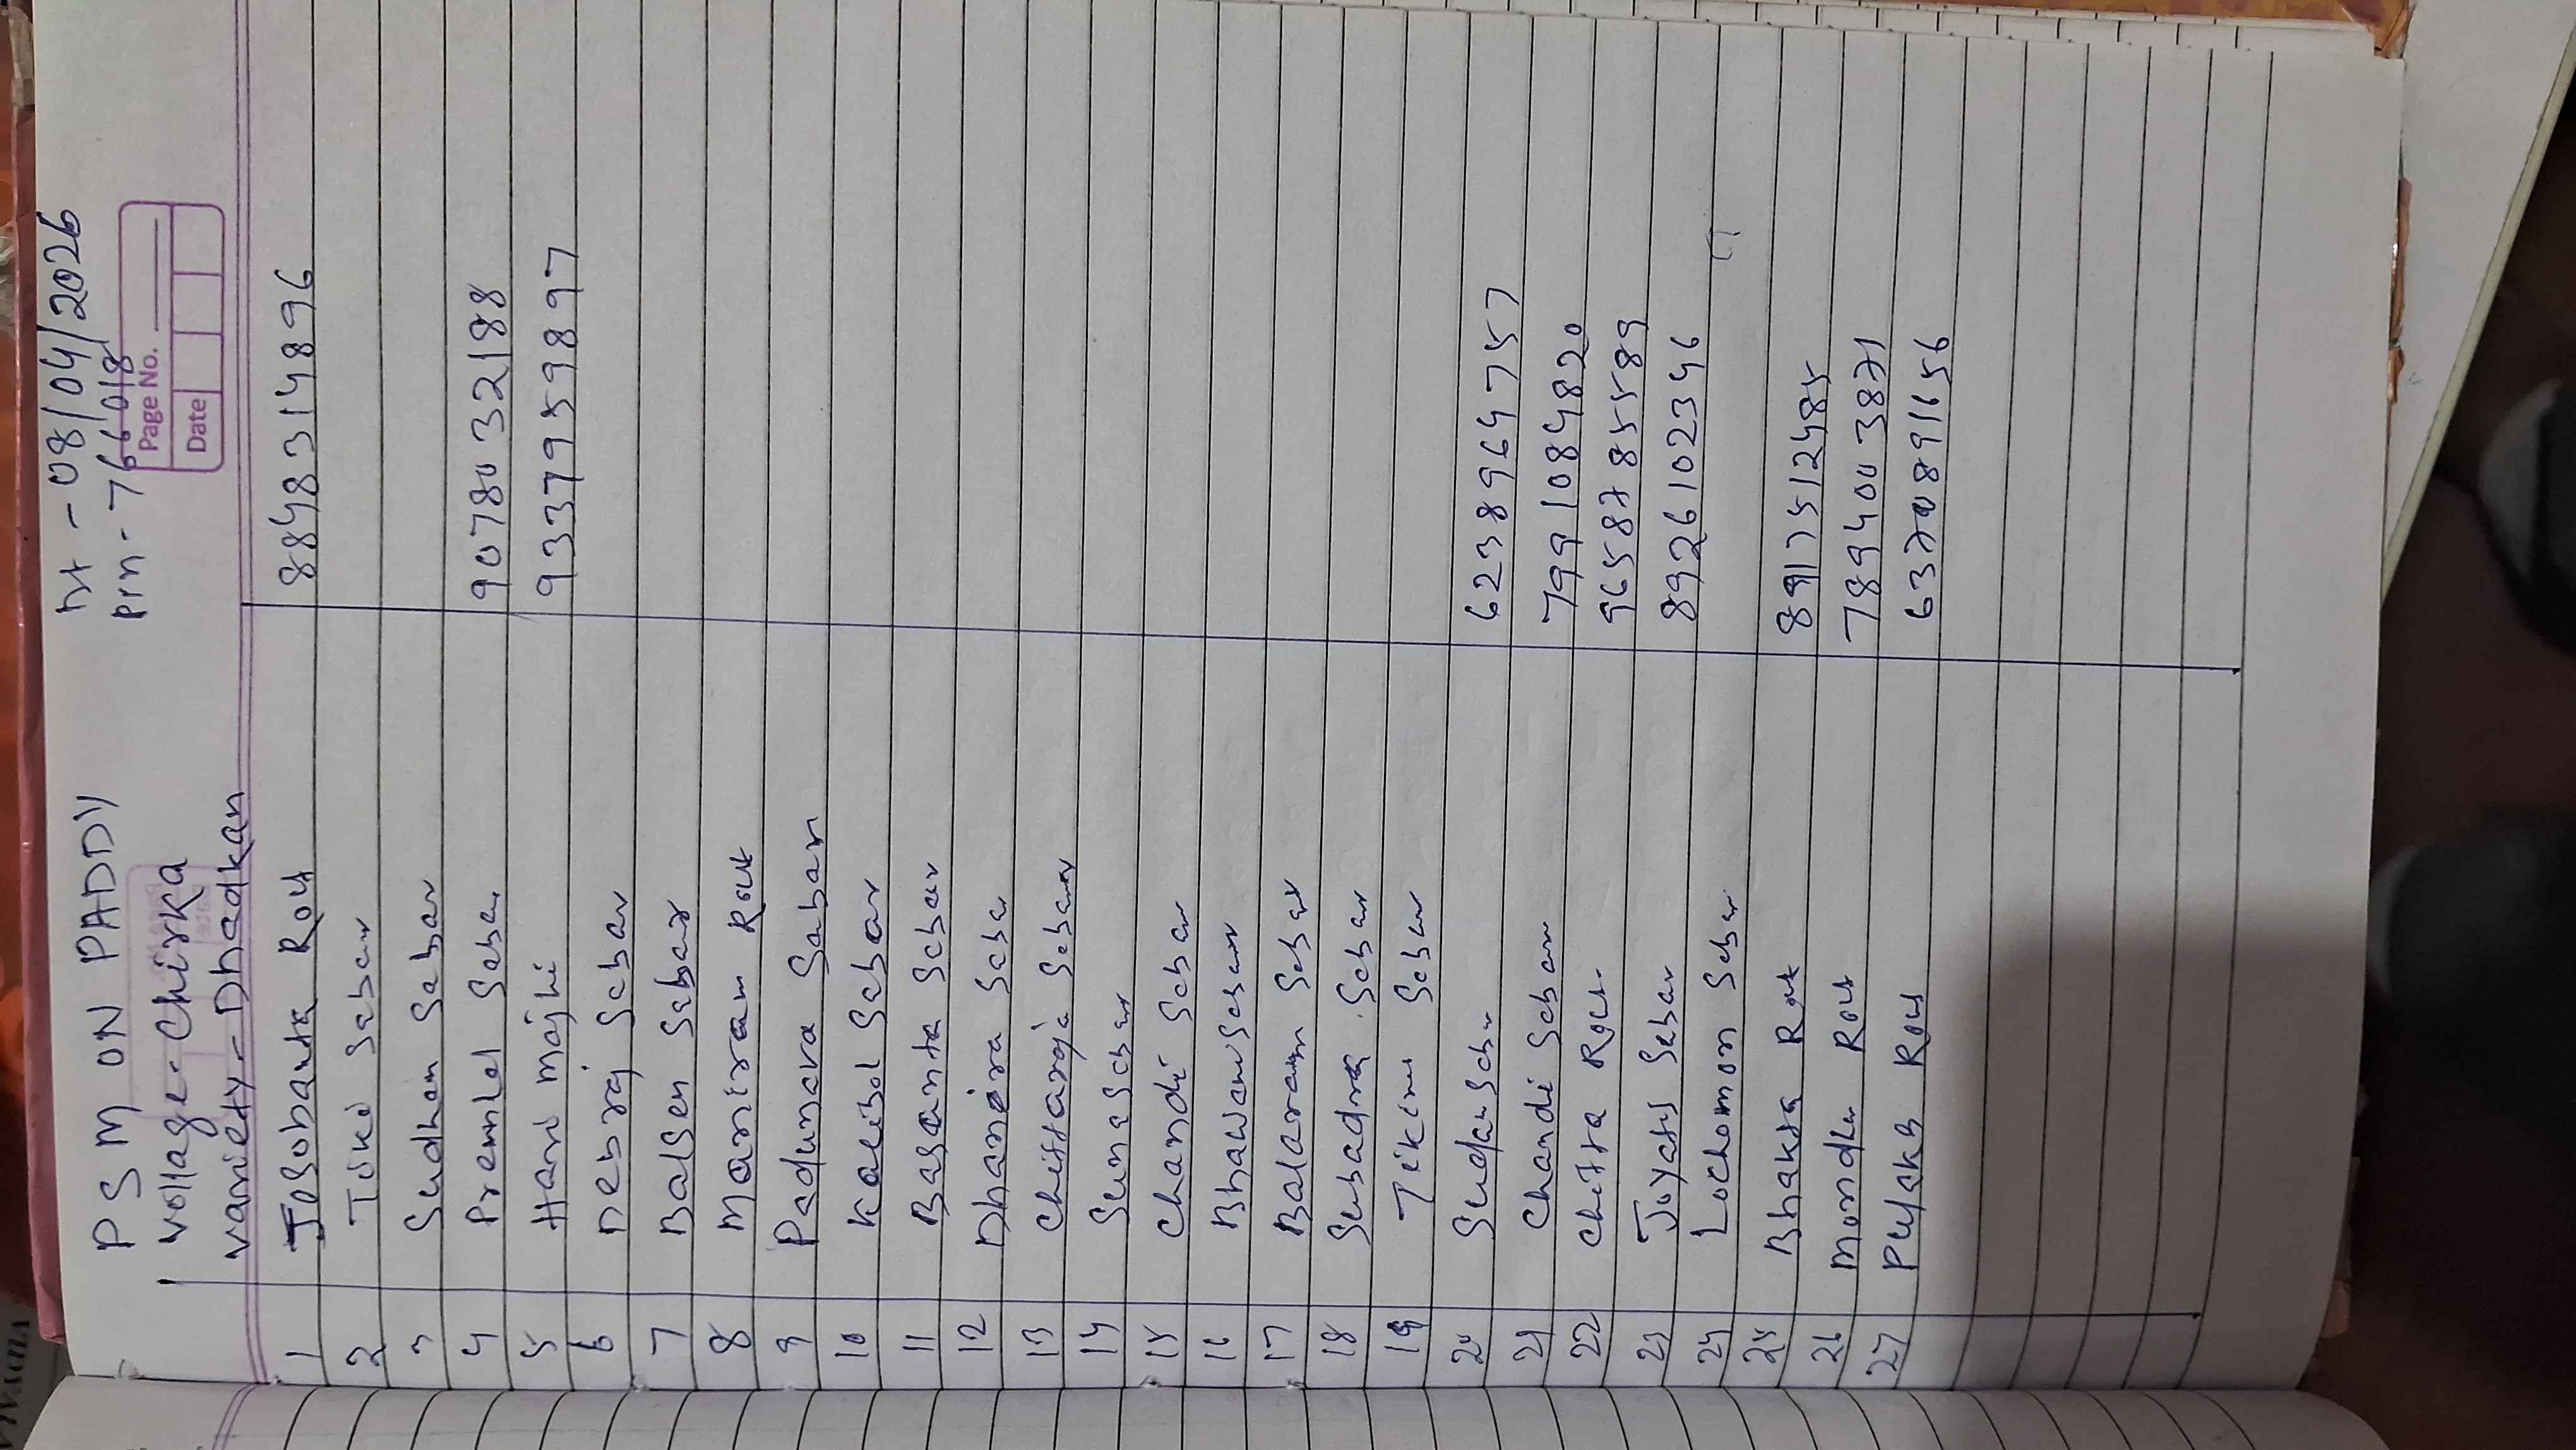 PSM ON PADDY Dt - 08/04/2026
Village - Chirka Pin - 766018
Variety - Dhadkan
Page No.
Date
1 Jasobanta Rout 8848314896
2 Tike Sabar
3 Sudhan Sabar
4 Premlal Sabar 9078032188
5 Hari majhi 9337959897
6 Debraj Sabar
7 Balsen Sabar
8 Maniram Rout
9 Padunava Sabar
10 Kalibol Sabar
11 Basanta Sabar
12 Dhanira Sabar
13 Chittaraja Sabar
14 Suna Sabar
15 Chandi Sabar
16 Bhawan Sabar
17 Balaram Sabar
18 Subadra Sabar
19 Tikim Sabar
20 Sudan Sabar 6238964757
21 Chandi Sabar 7991084820
22 Chitra Rout 9658785589
23 Joyati Sabar 8926102346
24 Lochomon Sabar
25 Bhakta Rout 8917512485
26 Mondhu Rout 7894003871
27 Pulaka Rout